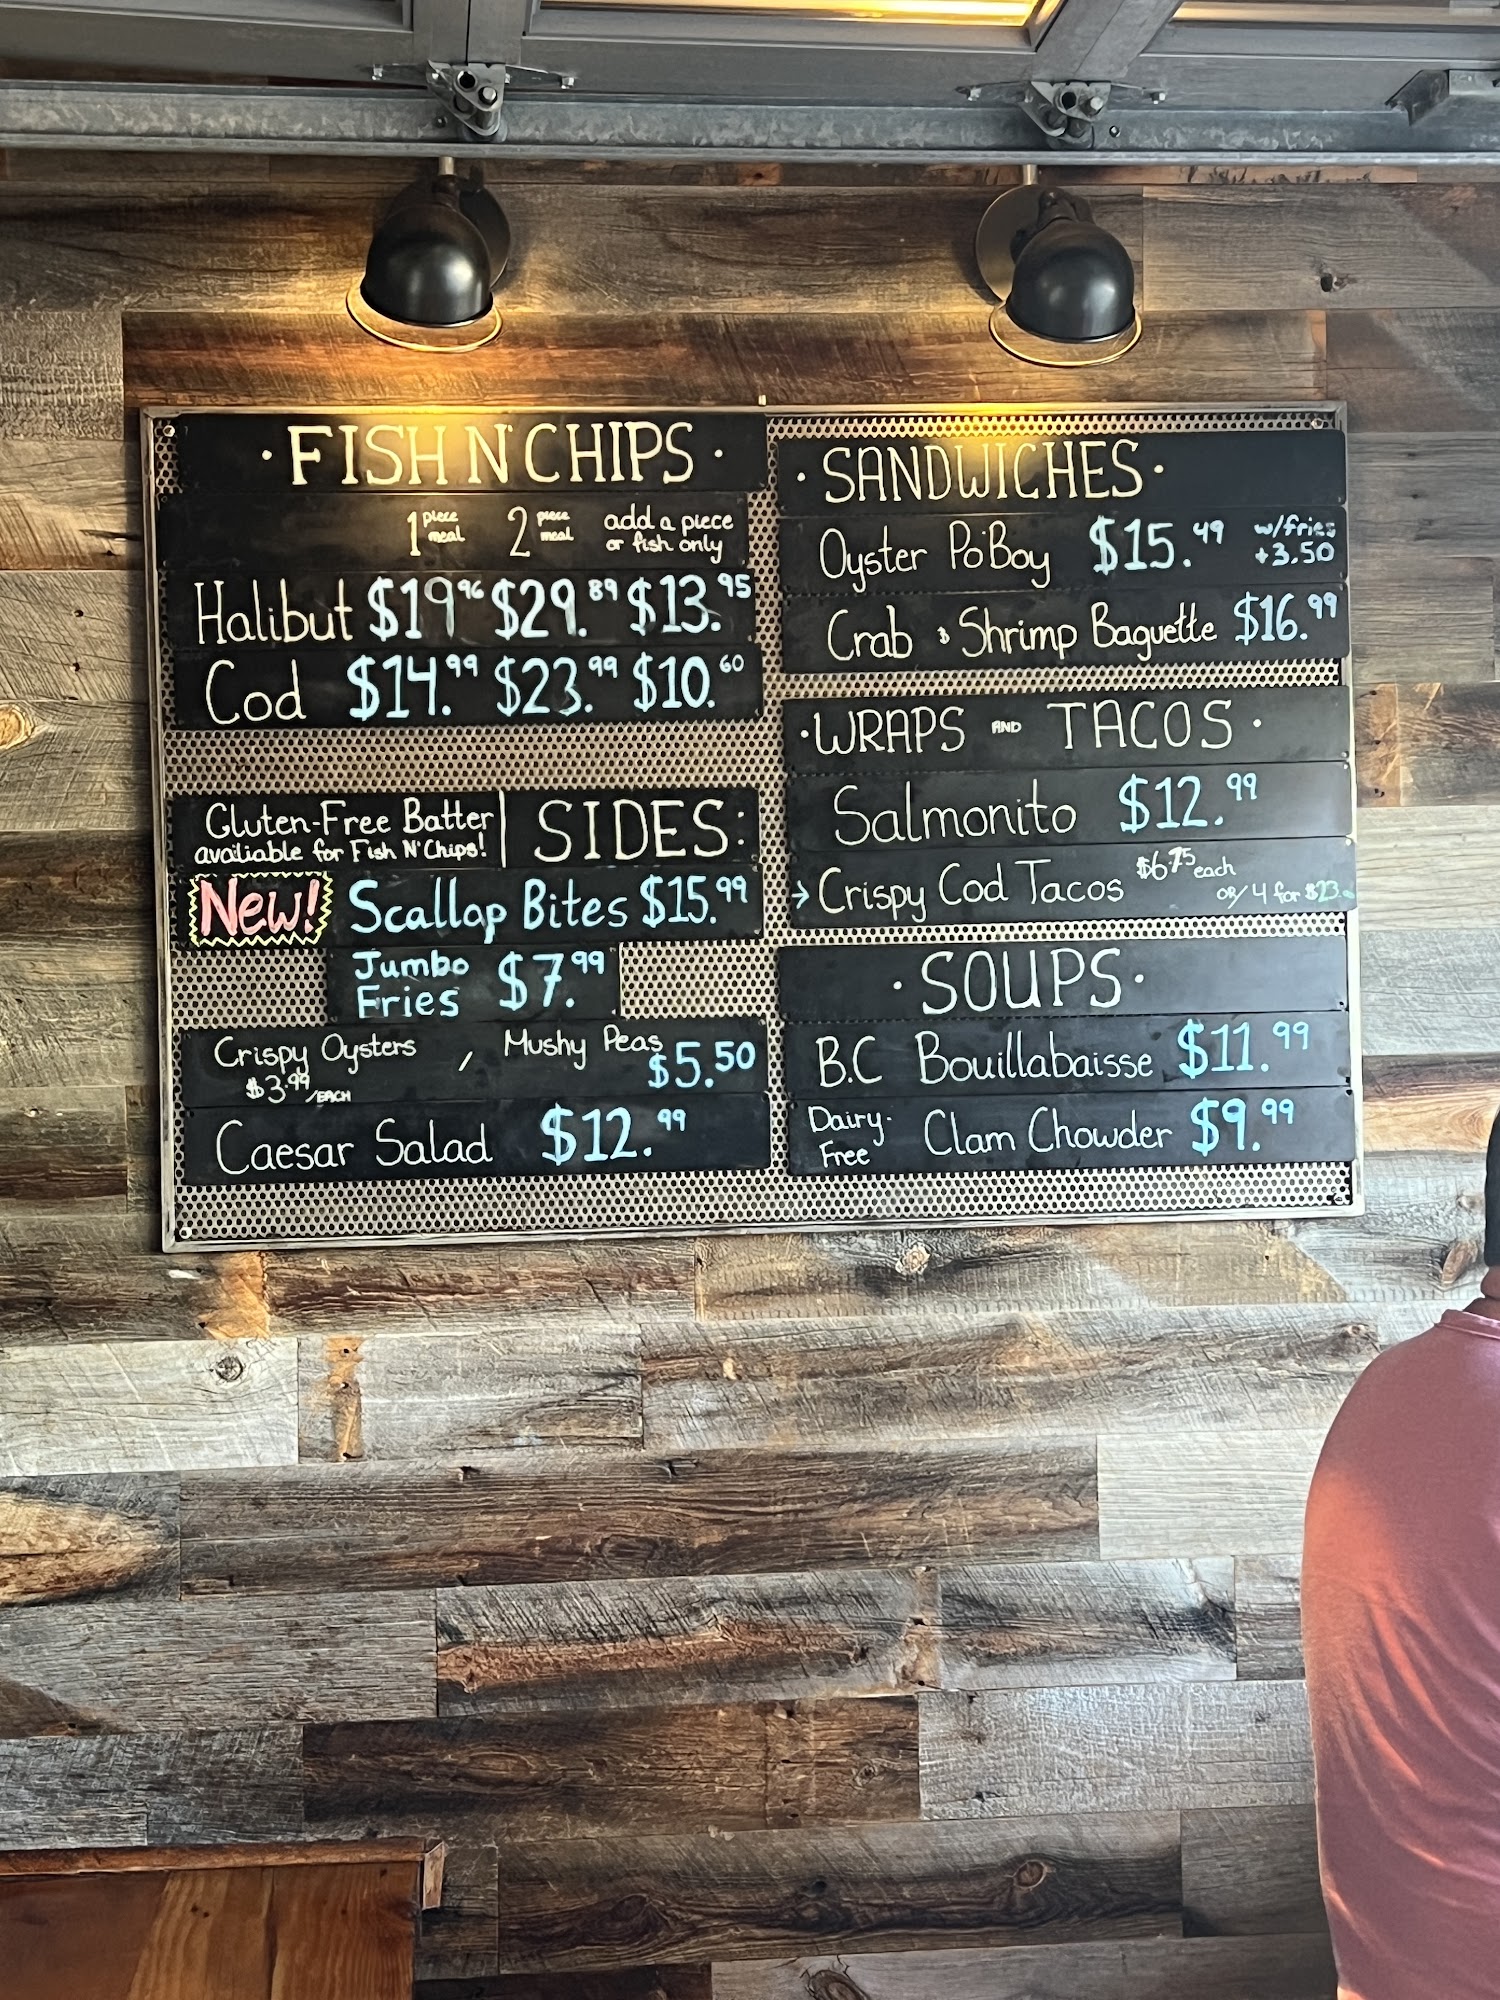 · FISH N' CHIPS ·
1 piece meal 2 piece meal add a piece or fish only
Halibut $19.96 $29.89 $13.95
Cod $14.99 $23.99 $10.60
Gluten-Free Batter
available for Fish N' Chips!
SIDES:
New! Scallop Bites $15.99
Jumbo Fries $7.99
Crispy Oysters $3.99/EACH , Mushy Peas $5.50
Caesar Salad $12.99
· SANDWICHES ·
Oyster Po'Boy $15.49 w/fries +3.50
Crab & Shrimp Baguette $16.99
· WRAPS AND TACOS ·
Salmonito $12.99
→ Crispy Cod Tacos $6.75 each
OR/ 4 for $23.
· SOUPS ·
B.C Bouillabaisse $11.99
Dairy-Free Clam Chowder $9.99